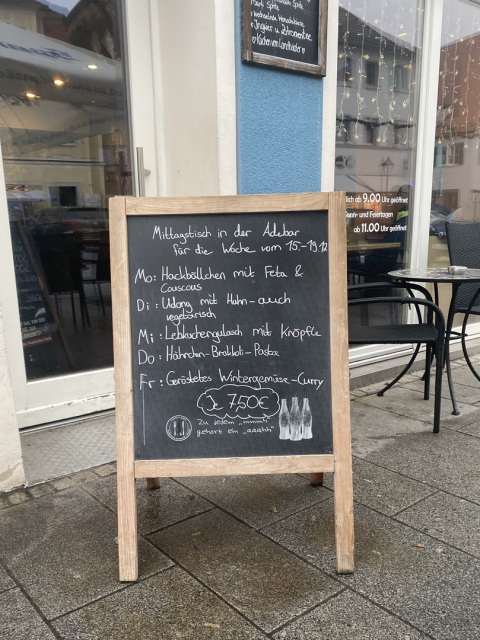 Ingwer u. Zitronentee
Kuchen vom Landbäcker
ab 9.00 Uhr geöffnet
Sonn- und Feiertagen
ab 11.00 Uhr geöffnet
Mittagstisch in der Adebar
für die Woche vom 15-19.12
Mo: Hackbällchen mit Feta &
Couscous
Di: Udong mit Huhn-auch
vegetarisch
Mi: Lebkuchengulasch mit Knöpfle
Do: Hähnchen-Brokkoli-Pasta
Fr: Geröstetes Wintergemüse-Curry
je 7,50€
Zu jedem „mmmh"
gehört ein „aaahh"